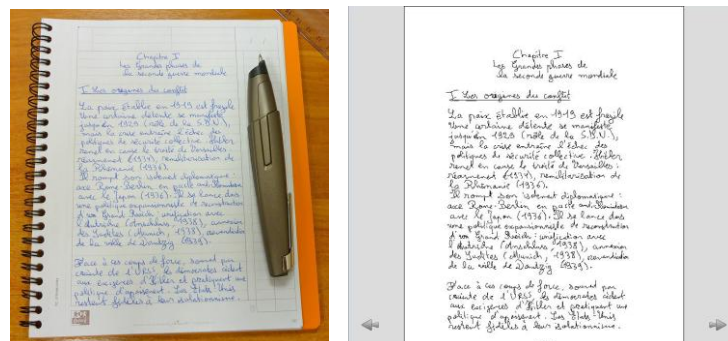 Chapitre I
Les Grandes phases de
la seconde guerre mondiale
I Les origines du conflit
La paix établie en 1919 est fragile
Une certaine détente se manifeste
jusqu'en 1929 (rôle de la S.D.N.),
mais la crise entraîne l'échec des
politiques de sécurité collective. Hitler
remet en cause le traité de Versailles :
réarmement (1935), remilitarisation de
la Rhénanie (1936).
Il rompt son isolement diplomatique :
axe Rome-Berlin en
avec le Japon (1936). Il se lance dans
une politique expansionniste de reconstruction
d'un Grand Reich : unification avec
l'Autriche (Anschluss, 1938), annexion
des Sudètes (Munich, 1938), revendication
de la ville de Dantzig (1939).
Face à ces coups de force, souvent par
crainte de l'URSS, les démocraties cèdent
aux exigences d'Hitler et pratiquent une
politique d'apaisement. Les États-Unis
restent fidèles à leur isolationnisme.
Chapitre I
Les Grandes phases de
la seconde guerre mondiale
I Les origines du conflit
La paix établie en 1919 est fragile
Une certaine détente se manifeste
jusqu'en 1929 (rôle de la S.D.N.),
mais la crise entraîne l'échec des
politiques de sécurité collective. Hitler
remet en cause le traité de Versailles :
réarmement (1935), remilitarisation de
la Rhénanie (1936).
Il rompt son isolement diplomatique :
axe Rome-Berlin en
avec le Japon (1936). Il se lance dans
une politique expansionniste de reconstruction
d'un Grand Reich : unification avec
l'Autriche (Anschluss, 1938), annexion
des Sudètes (Munich, 1938), revendication
de la ville de Dantzig (1939).
Face à ces coups de force, souvent par
crainte de l'URSS, les démocraties cèdent
aux exigences d'Hitler et pratiquent une
politique d'apaisement. Les États-Unis
restent fidèles à leur isolationnisme.